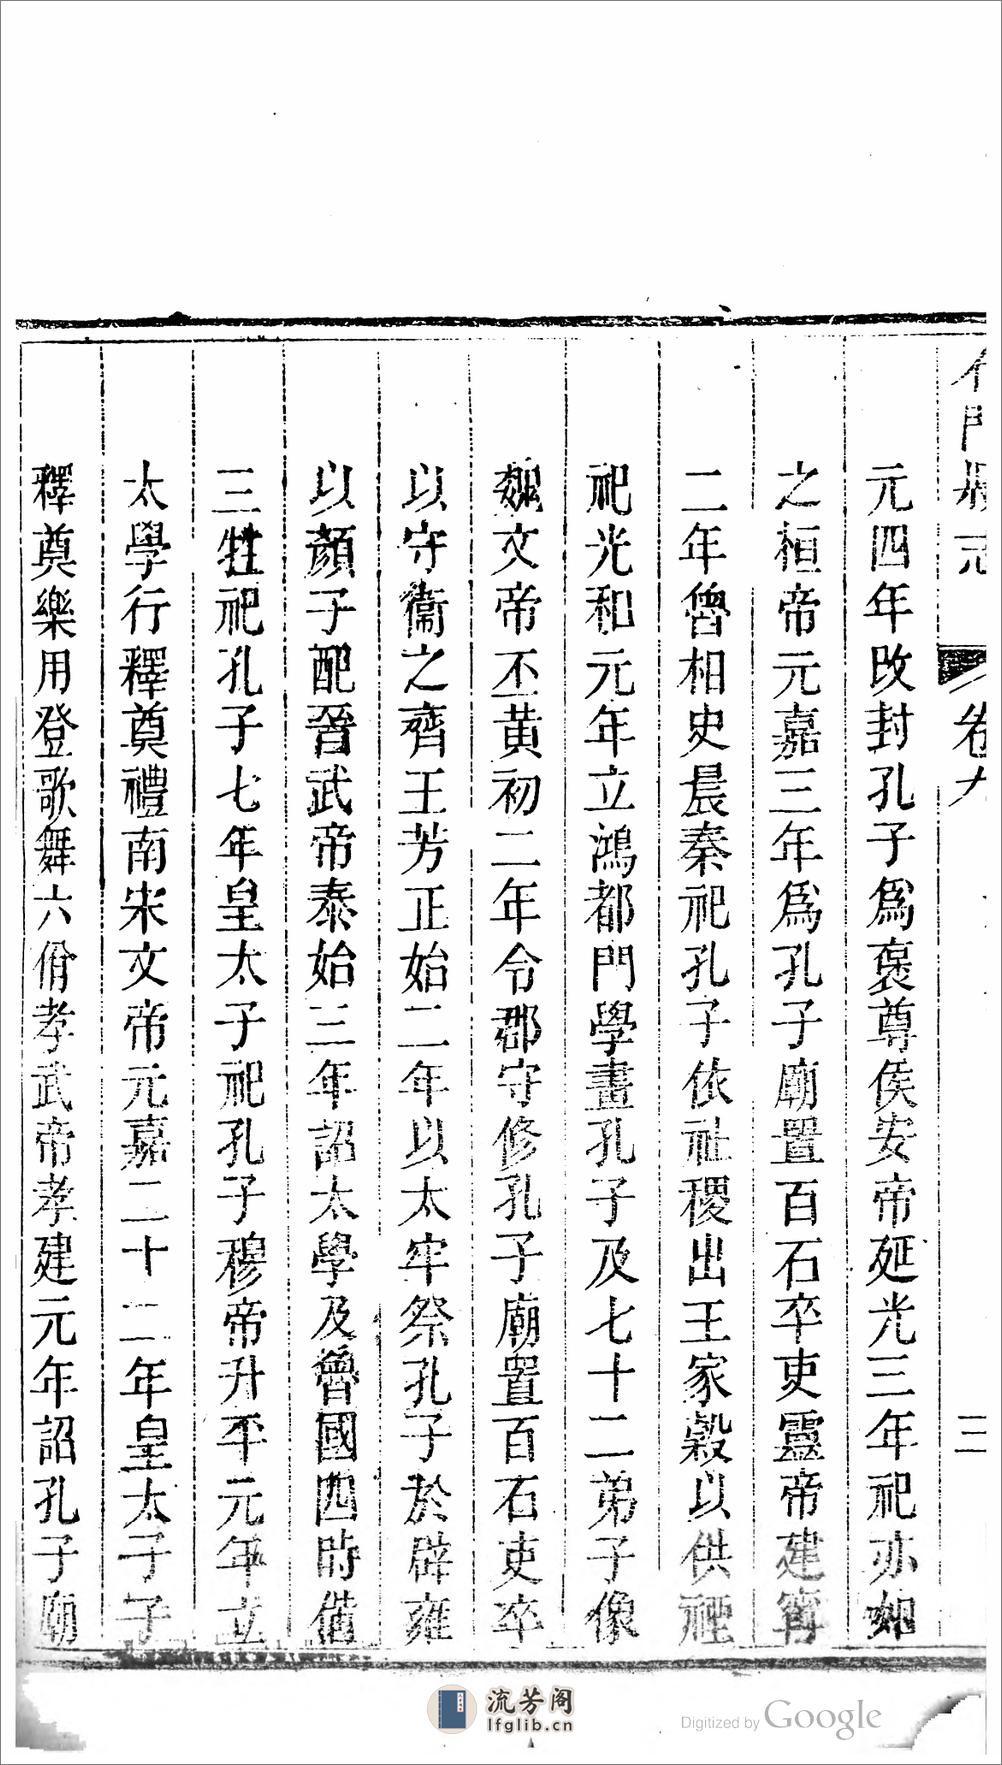 卷九
三
元四年改封孔子為褒尊侯安帝延光三年祀亦如
之桓帝元嘉三年為孔子廟置百石卒吏靈帝建寧
二年魯相史晨奏祀孔子依社稷出王家穀以供禋
祀光和元年立鴻都門學畫孔子及七十二弟子像
魏文帝丕黃初二年令郡守修孔子廟置百石吏卒
以守衞之齊王芳正始二年以太牢祭孔子於辟雍
以顏子配晉武帝泰始三年詔太學及魯國四時備
三牲祀孔子七年皇太子祀孔子穆帝升平元年立
太學行釋奠禮南宋文帝元嘉二十二年皇太子子
釋奠樂用登歌舞六佾孝武帝孝建元年詔孔子廟
流芳阁
lfglib.cn
Digitized by Google